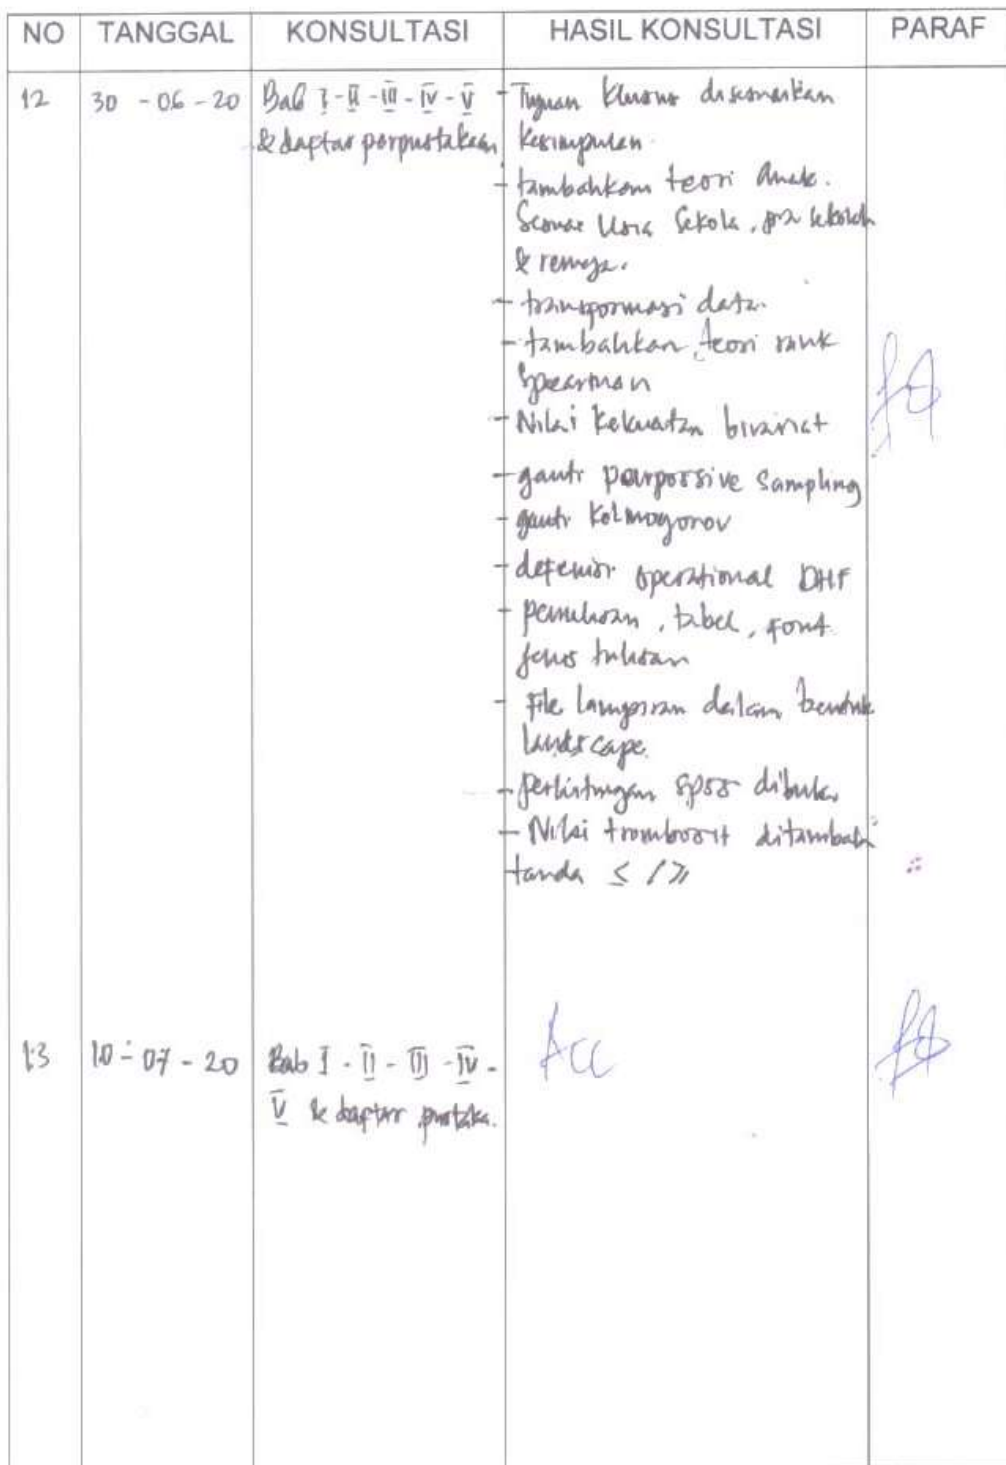 NO TANGGAL KONSULTASI HASIL KONSULTASI PARAF
12 30 - 06 - 20 Bab I - II - III - IV - V - Tujuan khusus disesuaikan
& daftar perpustakaan kesimpulan.
- tambahkan teori anak.
Sesuai Usia Sekola, pra sekolah
& remaja.
- transformasi data.
- tambahkan teori rank
Spearman
- Nilai kekuatan bivariat
- ganti purporsive sampling
- ganti Kolmogorov
- defenisi operational DHF
- penulisan, tabel, font
jenis tulisan
- File lampiran dalam bentuk
landscape.
- perhitungan spss dibuka.
- Nilai trombosit ditambah
tanda ≤ / ≥
13 10 - 07 - 20 Bab I - II - III - IV - Acc
V & daftar pustaka.